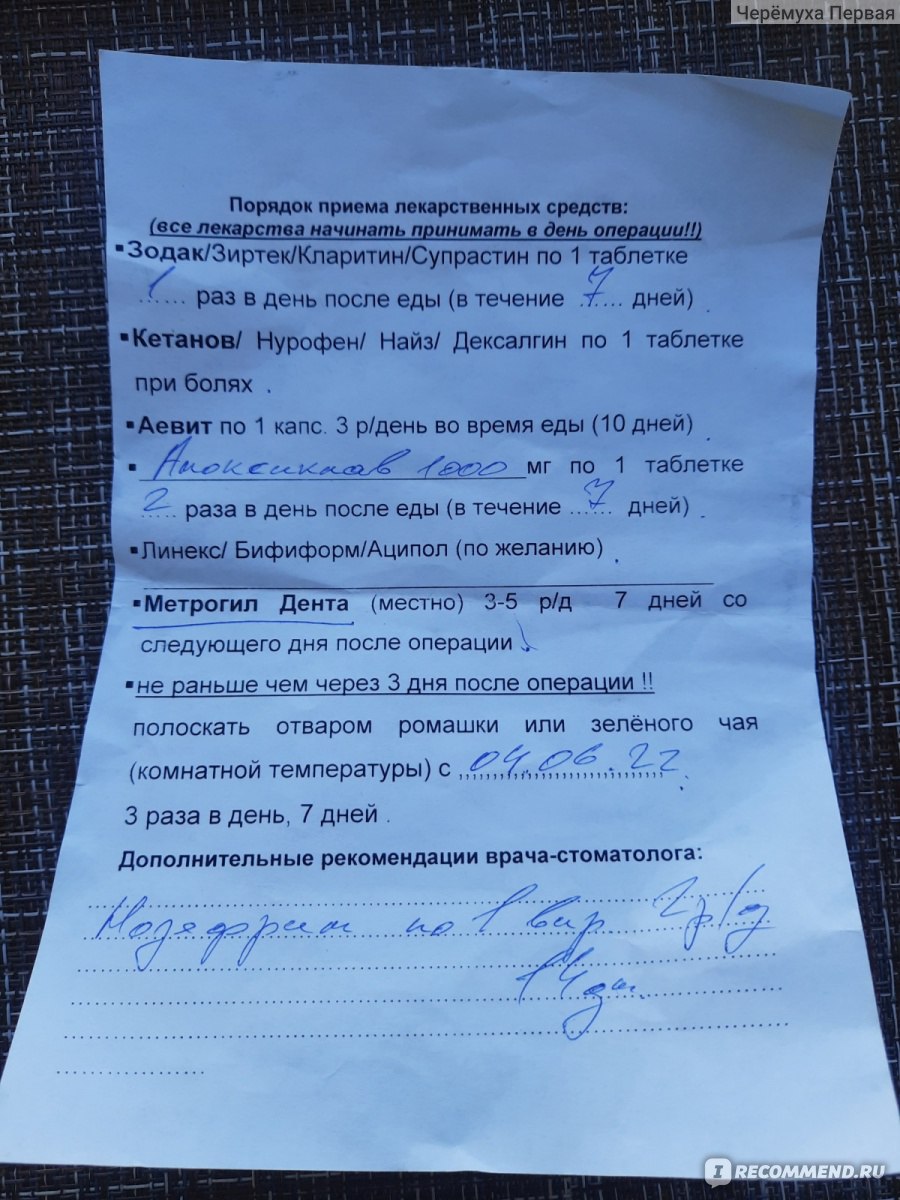 Черёмуха Первая
Порядок приема лекарственных средств:
(все лекарства начинать принимать в день операции!!)
▪Зодак/Зиртек/Кларитин/Супрастин по 1 таблетке
..1... раз в день после еды (в течение .7.... дней)
▪Кетанов/ Нурофен/ Найз/ Дексалгин по 1 таблетке
при болях .
▪Аевит по 1 капс. 3 р/день во время еды (10 дней)
▪ Амоксиклав 1000 мг по 1 таблетке
..2... раза в день после еды (в течение ...7... дней)
▪Линекс/ Бифиформ/Аципол (по желанию)
▪Метрогил Дента (местно) 3-5 р/д 7 дней со
следующего дня после операции
▪не раньше чем через 3 дня после операции !!
полоскать отваром ромашки или зелёного чая
(комнатной температуры) с 04.06.22
3 раза в день, 7 дней .
Дополнительные рекомендации врача-стоматолога:
Назефрин по 1 впр. 2 р/д
14 дн.
IRECOMMEND.RU